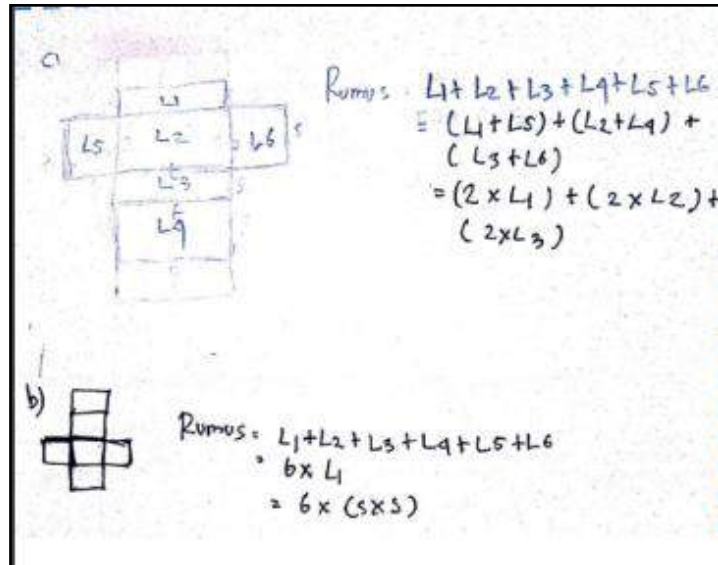 a
L1
L5 L2 L6 s
L3 s
L4
Rumus : L1+L2+L3+L4+L5+L6
= (L1+L5)+(L2+L4)+
(L3+L6)
=(2×L1)+(2×L2)+
(2×L3)
b)
Rumus = L1+L2+L3+L4+L5+L6
= 6×L1
= 6×(s×s)